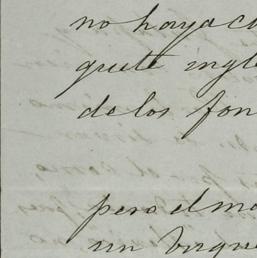 no haya ca
quete ingle
de los fon
pero el mo
un buque